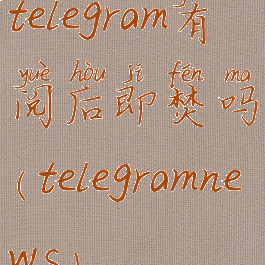 telegram有
yuè hòu jí fén ma
阅后即焚吗
(telegramne
ws)